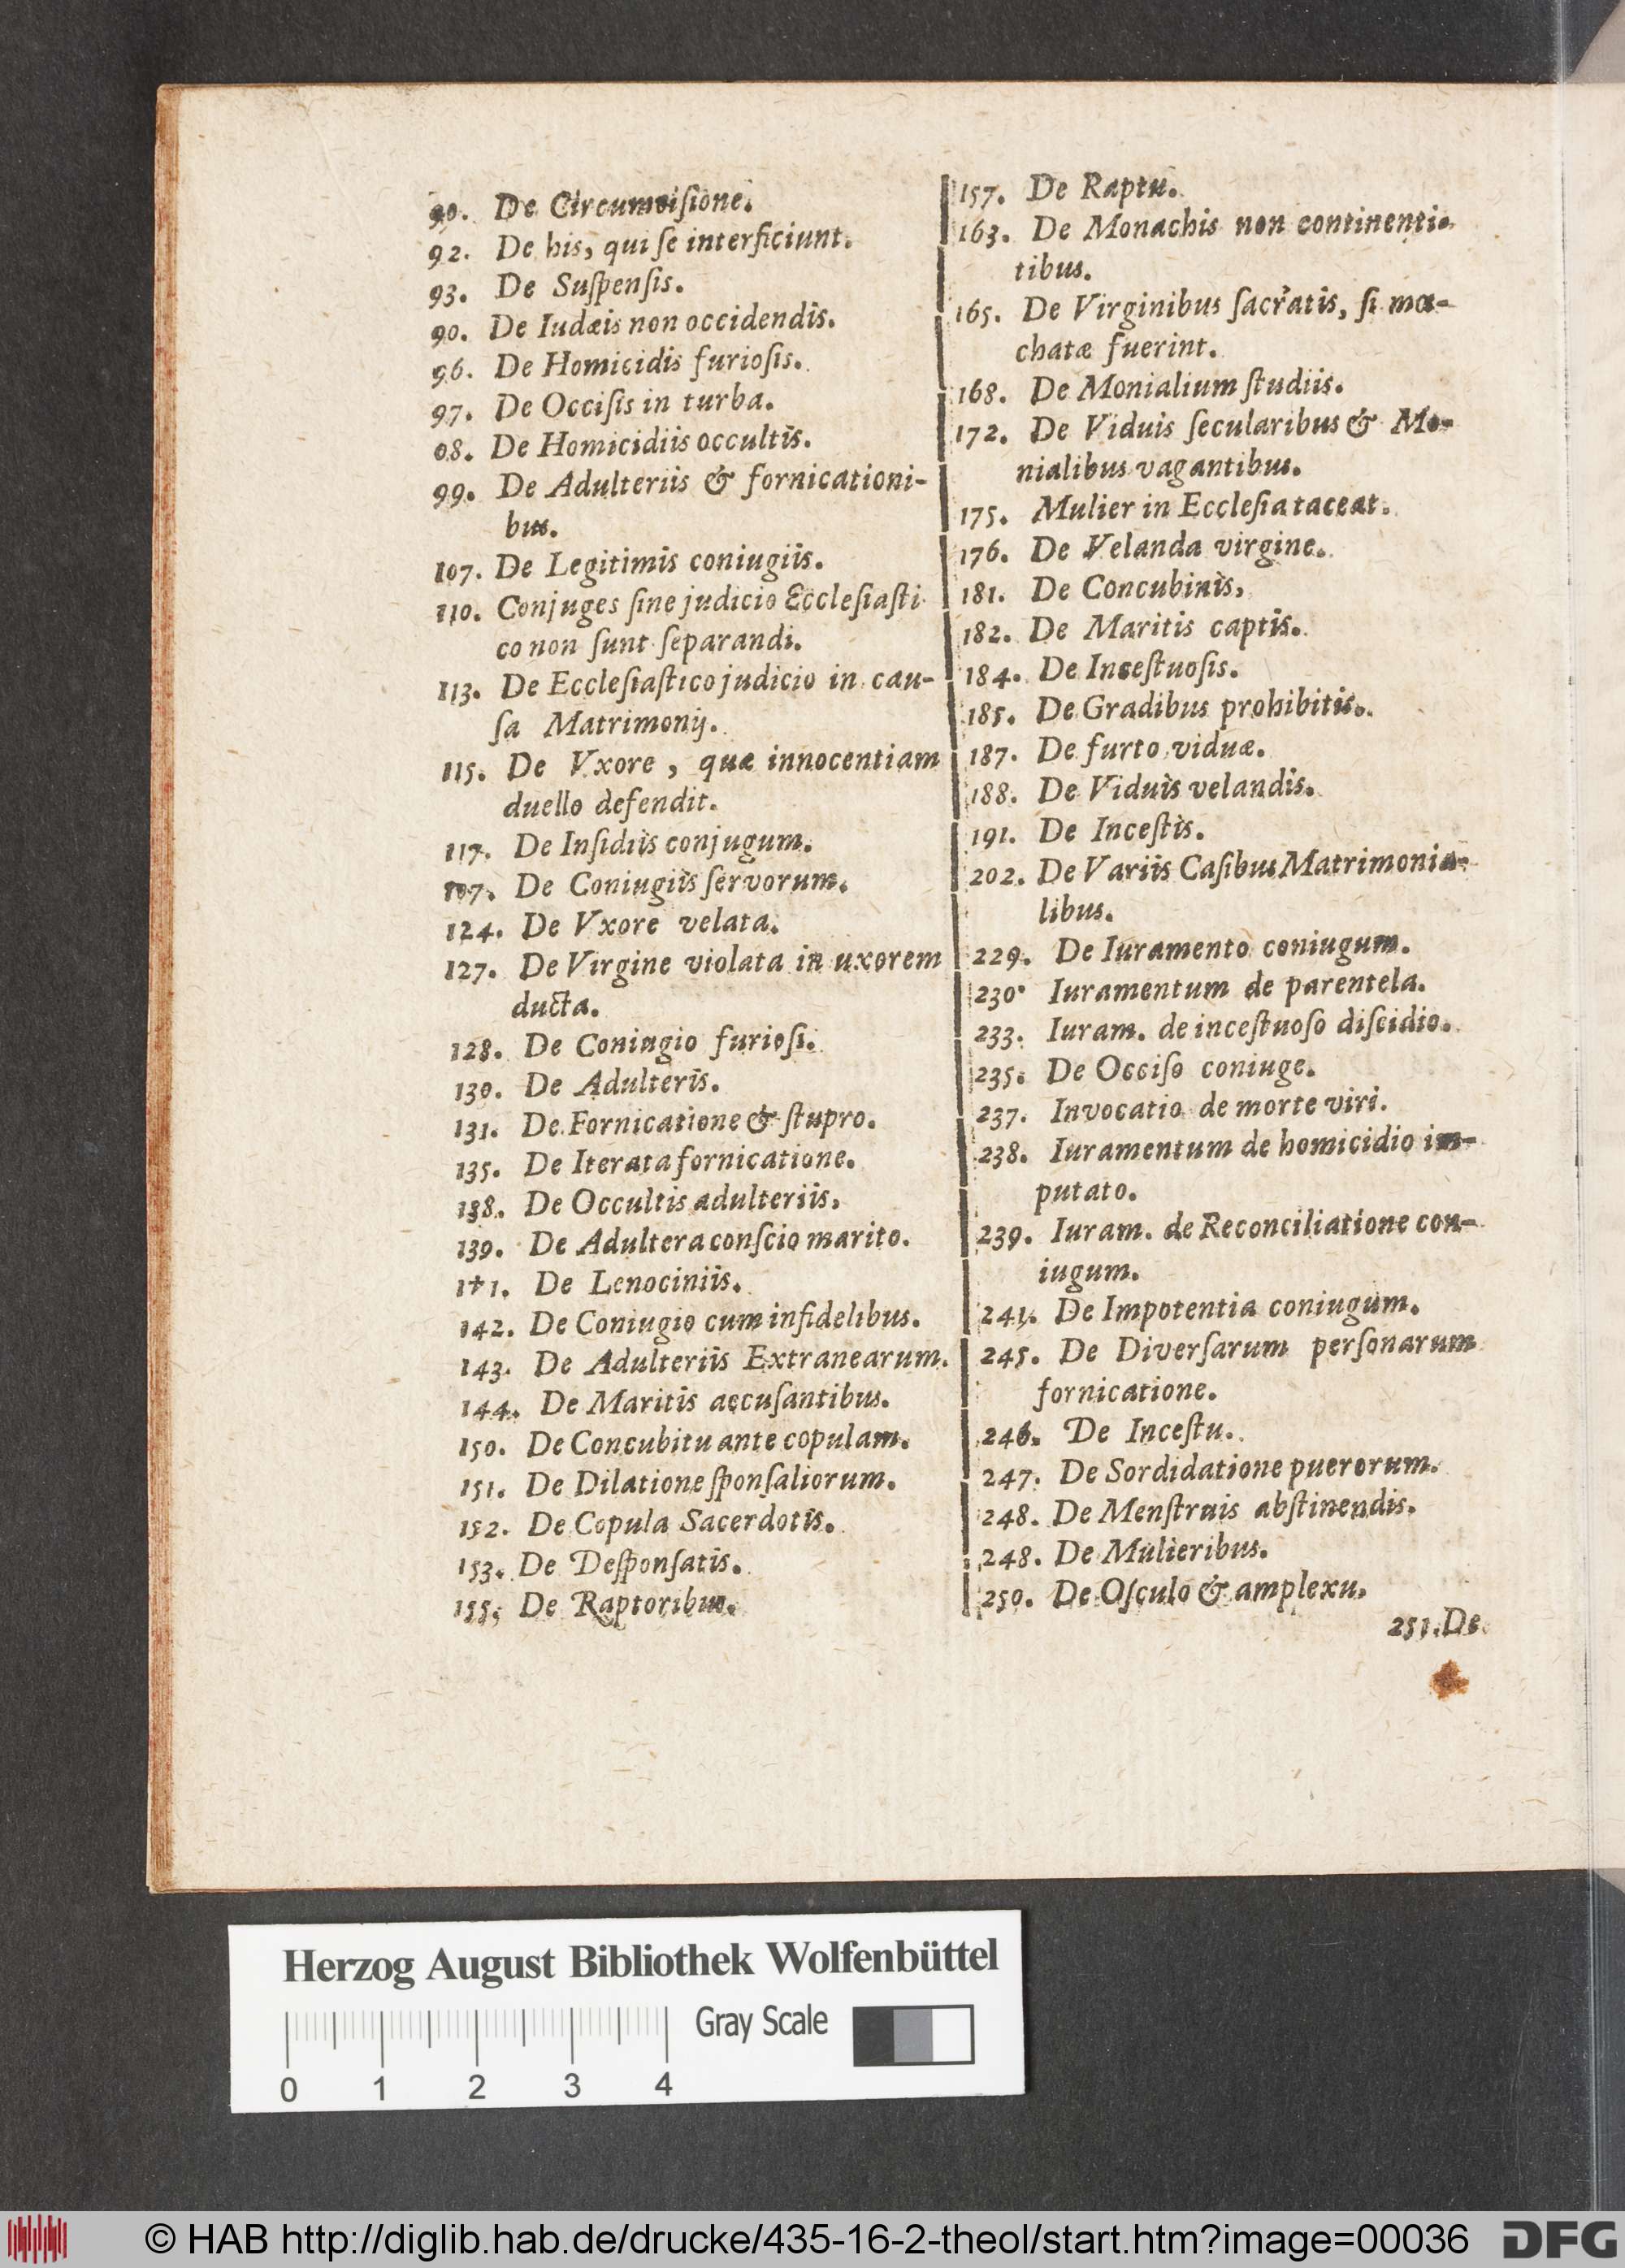 90. De Circumcisione.
92. De his, qui se interficiunt.
93. De Suspensis.
90. De Iudæis non occidendis.
96. De Homicidis furiosis.
97. De Occisis in turba.
98. De Homicidiis occultis.
99. De Adulteriis & fornicationi-
bus.
107. De Legitimis coniugiis.
110. Conjuges sine judicio Ecclesiasti
co non sunt separandi.
113. De Ecclesiastico judicio in cau-
sa Matrimonij.
115. De Vxore, quæ innocentiam
duello defendit.
117. De Insidiis conjugum.
107. De Coniugiis servorum.
124. De Vxore velata.
127. De Virgine violata in uxorem
ducta.
128. De Coniugio furiosi.
130. De Adulteris.
131. De Fornicatione & stupro.
135. De Iterata fornicatione.
138. De Occultis adulteriis.
139. De Adultera conscio marito.
1+1. De Lenociniis.
142. De Coniugio cum infidelibus.
143. De Adulteriis Extranearum.
144. De Maritis accusantibus.
150. De Concubitu ante copulam.
151. De Dilatione sponsaliorum.
152. De Copula Sacerdotis.
153. De Desponsatis.
155. De Raptoribus.
157. De Raptu.
163. De Monachis non continenti-
tibus.
165. De Virginibus sacratis, si mœ-
chatæ fuerint.
168. De Monialium studiis.
172. De Viduis secularibus & Mo-
nialibus vagantibus.
175. Mulier in Ecclesia taceat.
176. De Velanda virgine.
181. De Concubinis.
182. De Maritis captis.
184. De Incestuosis.
185. De Gradibus prohibitis.
187. De furto viduæ.
188. De Viduis velandis.
191. De Incestis.
202. De Variis Casibus Matrimonia-
libus.
229. De Iuramento coniugum.
230. Iuramentum de parentela.
233. Iuram. de incestuoso discidio.
235. De Occiso coniuge.
237. Invocatio de morte viri.
238. Iuramentum de homicidio im-
putato.
239. Iuram. de Reconciliatione con-
iugum.
241. De Impotentia coniugum.
245. De Diversarum personarum
fornicatione.
246. De Incestu.
247. De Sordidatione puerorum.
248. De Menstruis abstinendis.
248. De Mulieribus.
250. De Osculo & amplexu.
251. De
Herzog August Bibliothek Wolfenbüttel
Gray Scale
0 1 2 3 4
© HAB http://diglib.hab.de/drucke/435-16-2-theol/start.htm?image=00036
DFG